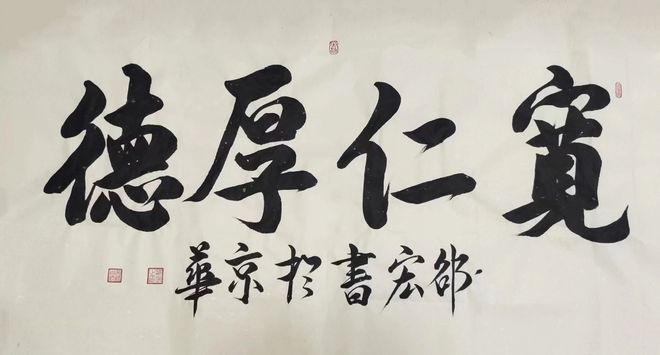 寬仁厚德
邵宏書於京華